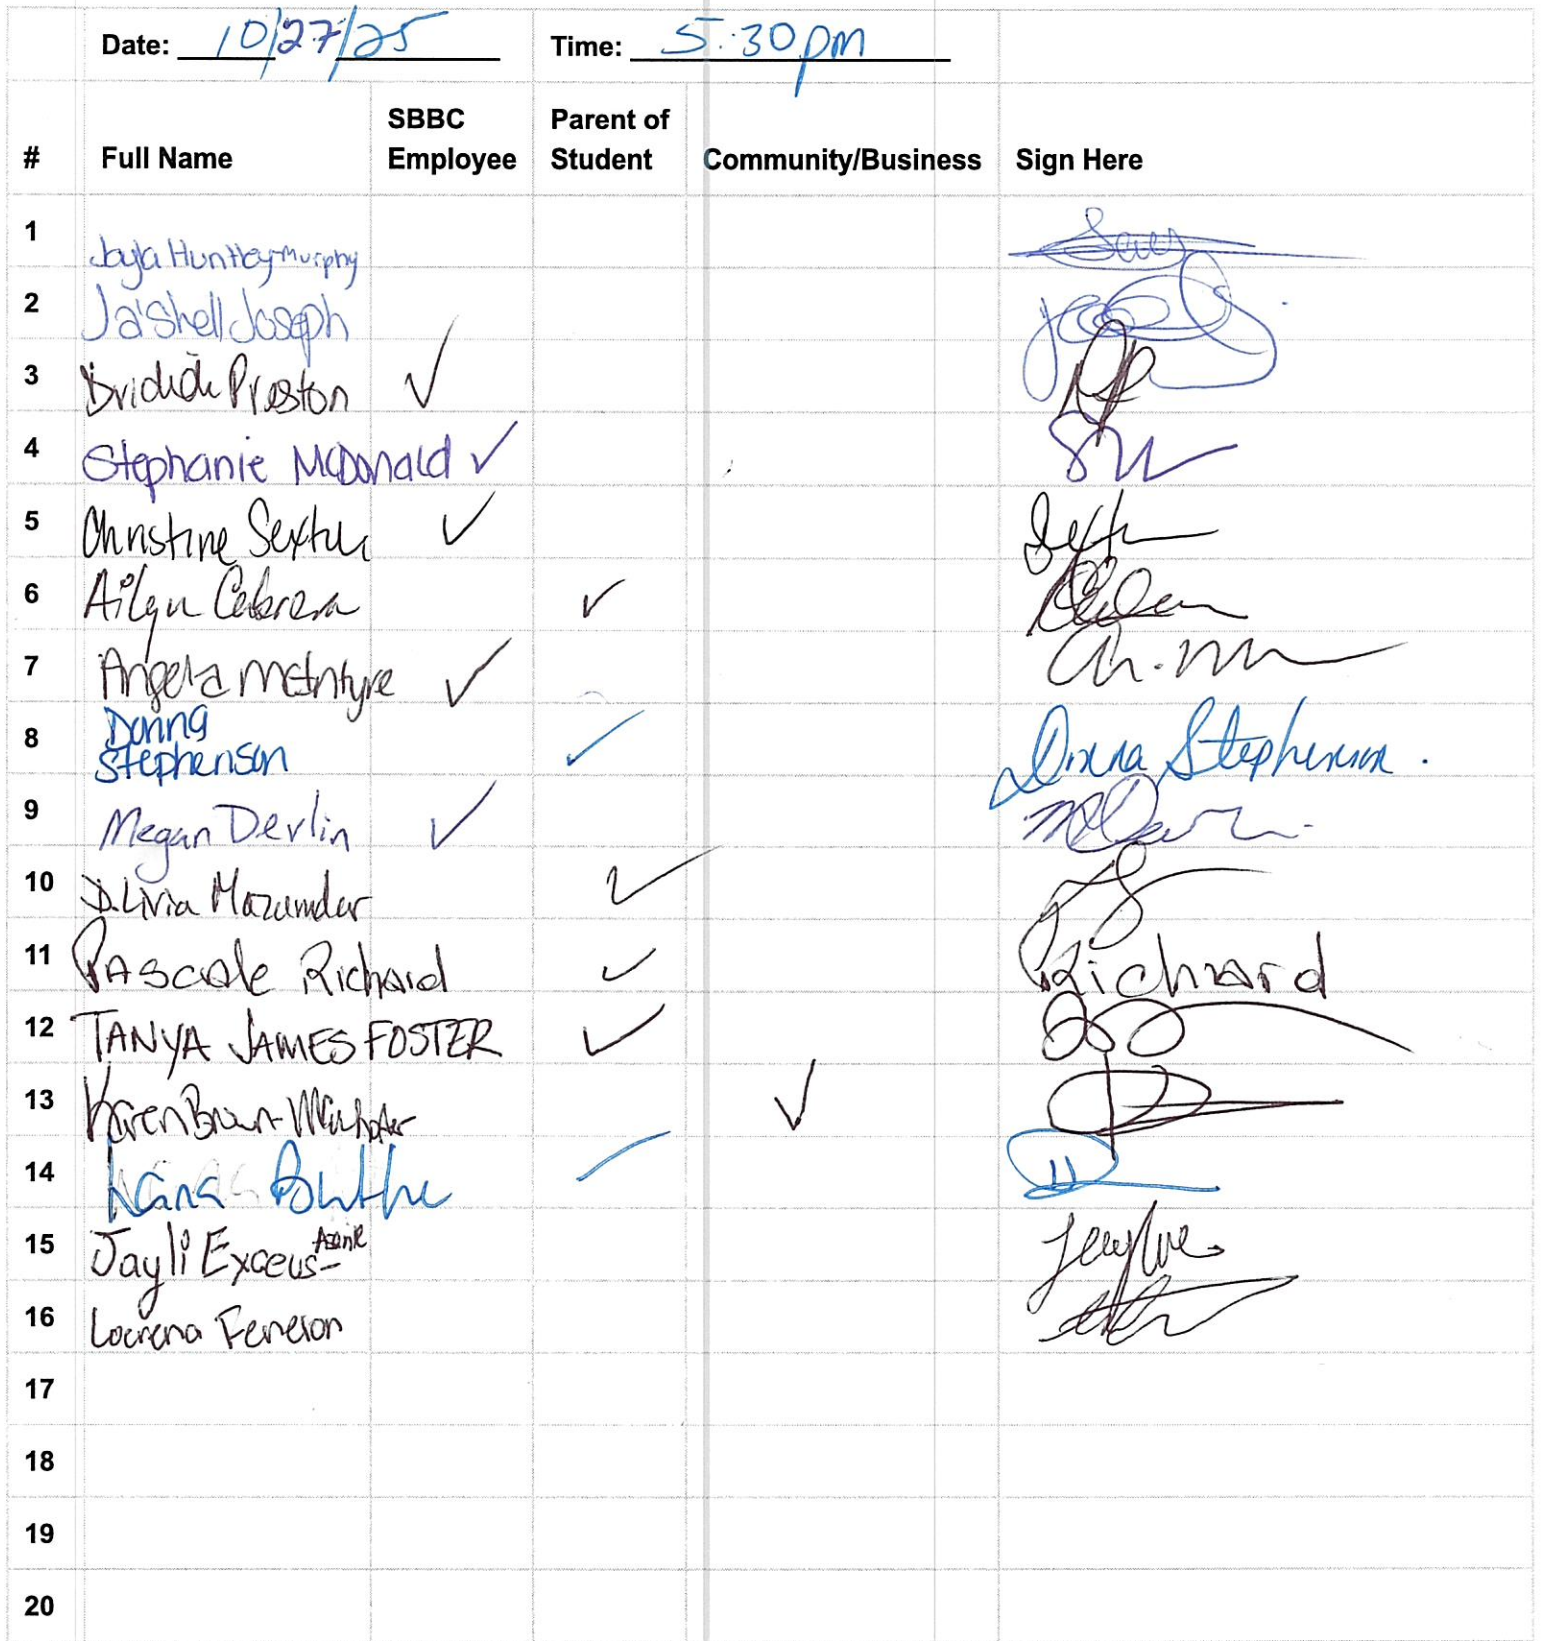 Date: 10/27/25 Time: 5:30pm
# Full Name SBBC Employee Parent of Student Community/Business Sign Here
1 Jayla Huntley-Murphy
2 Ja'Shell Joseph
3 Preston ✓
4 Stephanie McDonald ✓
5 Christine Sexton ✓
6 Ailyn Cabrera ✓
7 Angela McIntyre ✓
8 Donna Stephenson ✓ Donna Stephenson.
9 Megan Devlin ✓
10 D. Livia Mazumdar ✓
11 PAscale Richard ✓ Richard
12 TANYA JAMES FOSTER ✓
13 Karen Brown- ✓
14
15 Jayli Exceus-
16 Feneron
17
18
19
20